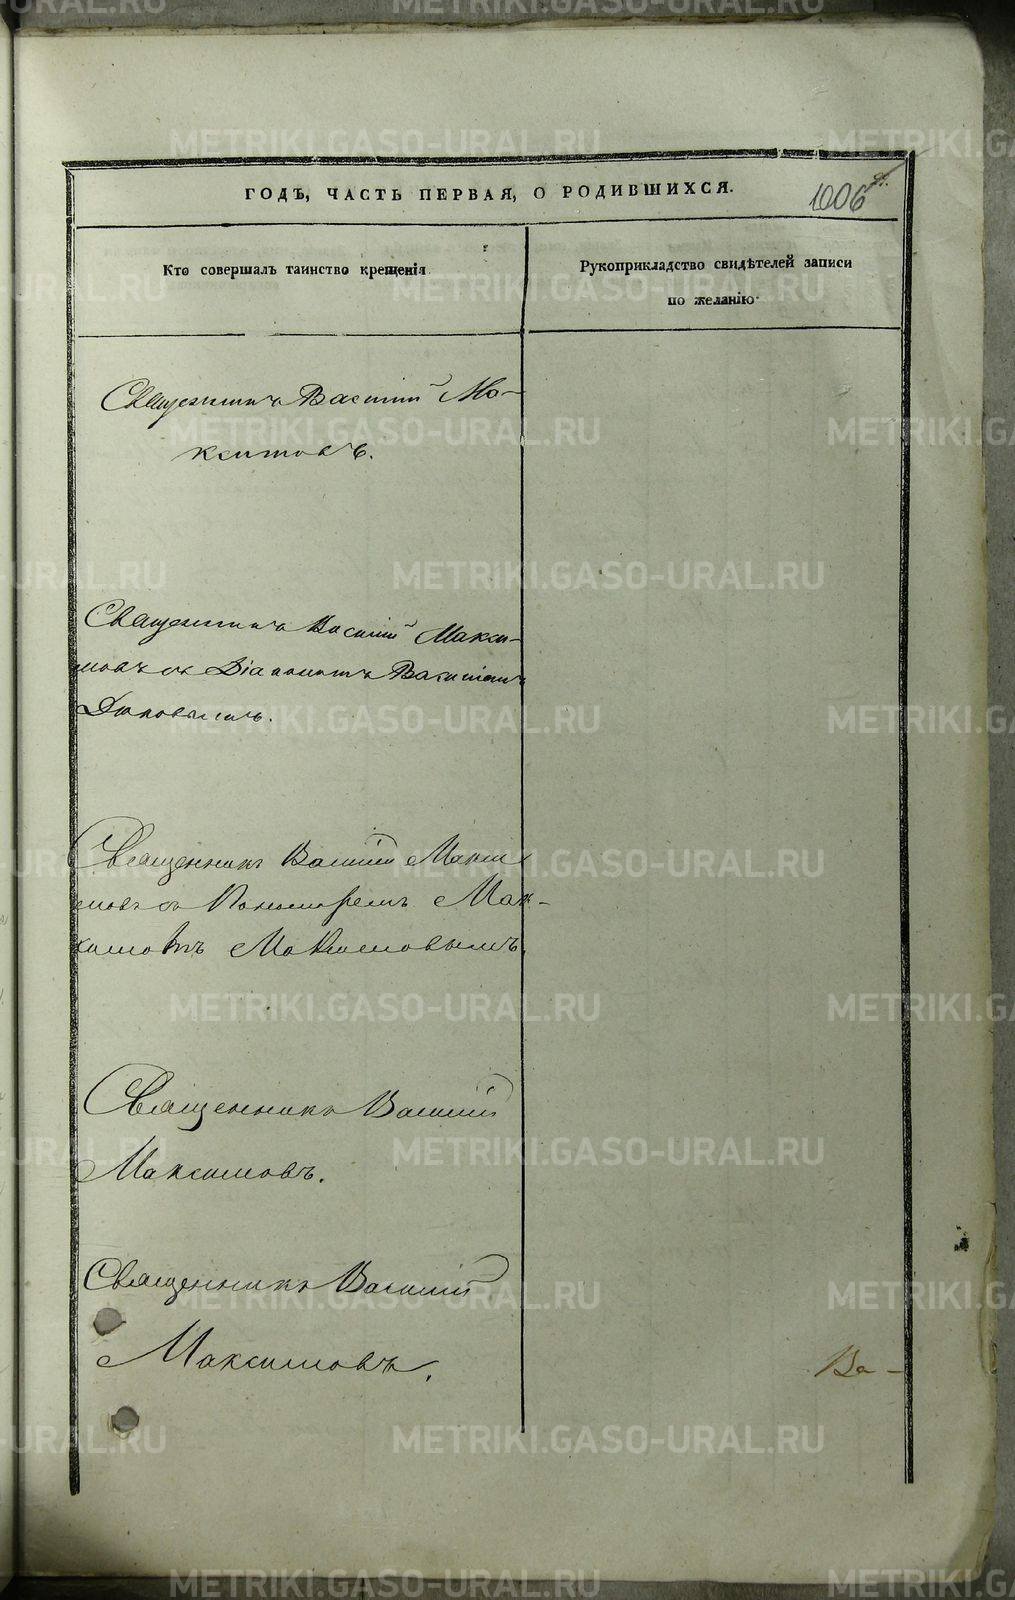 ГОДЪ, ЧАСТЬ ПЕРВАЯ, О РОДИВШИХСЯ.
1006
Кто совершалъ таинство крещенія
Рукоприкладство свидѣтелей записи
по желанію
Священникъ Василій Ма-
ксимовъ.
Священникъ Василій Макси-
мовъ съ Діакономъ Василіемъ
Священникъ Василій Макси
мовъ съ Пономаремъ Мак-
симомъ Максимовымъ.
Священникъ Василій
Максимовъ.
Священникъ Василій
Максимовъ.
Ва-
METRIKI.GASO-URAL.RU